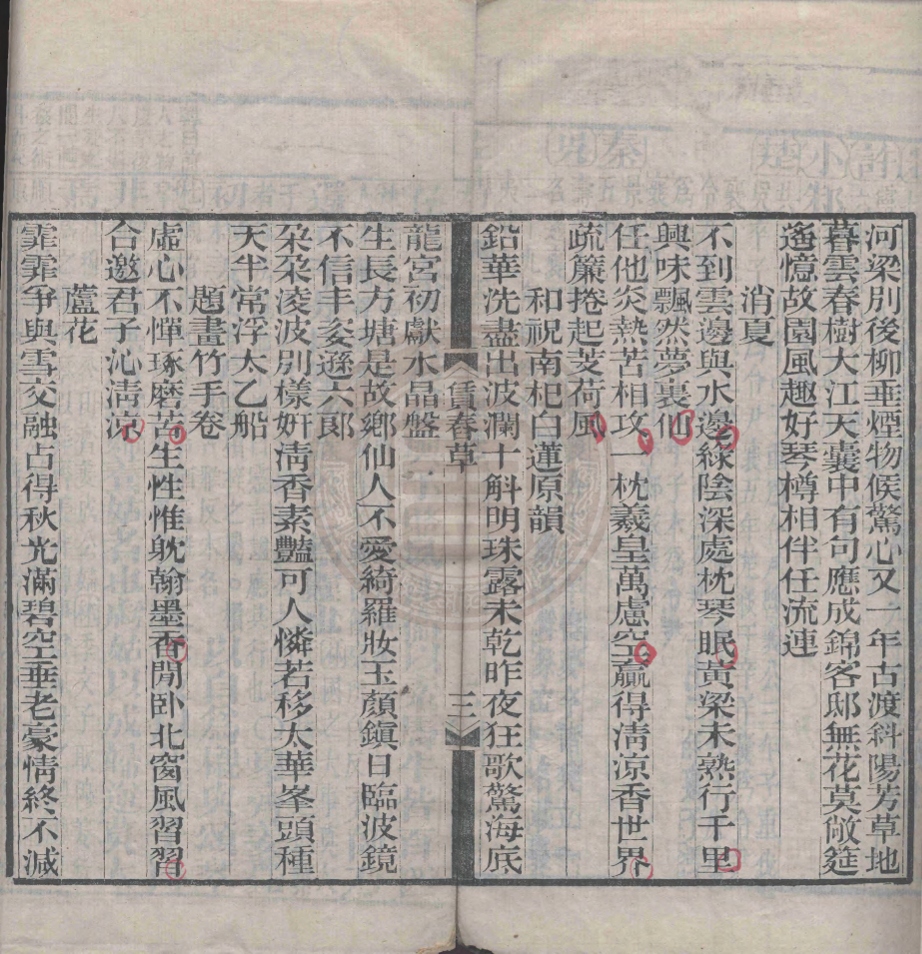 河梁別後柳垂煙物候驚心又一年古渡斜陽芳草地
暮雲春樹大江天囊中有句應成錦客邸無花莫敞筵
遙憶故園風趣好琴樽相伴任流連
消夏
不到雲邊與水邊綠陰深處枕琴眠黃粱未熟行千里
興味飄然夢裏仙
任他炎熱苦相攻一枕羲皇萬慮空贏得清涼香世界
疏簾捲起芰荷風
和祝南杞白蓮原韻
鉛華洗盡出波瀾十斛明珠露未乾昨夜狂歌驚海底
賃春草
三
龍宮初獻水晶盤
生長方塘是故鄉仙人不愛綺羅妝玉顏鎮日臨波鏡
不信丰姿遜六郎
朵朵淩波別樣妍清香素豔可人憐若移太華峯頭種
天半常浮太乙船
題畫竹手卷
虛心不憚琢磨苦生性惟躭翰墨香閒卧北窗風習習
合邀君子沁清涼
蘆花
霏霏爭與雪交融占得秋光滿碧空垂老豪情終不減